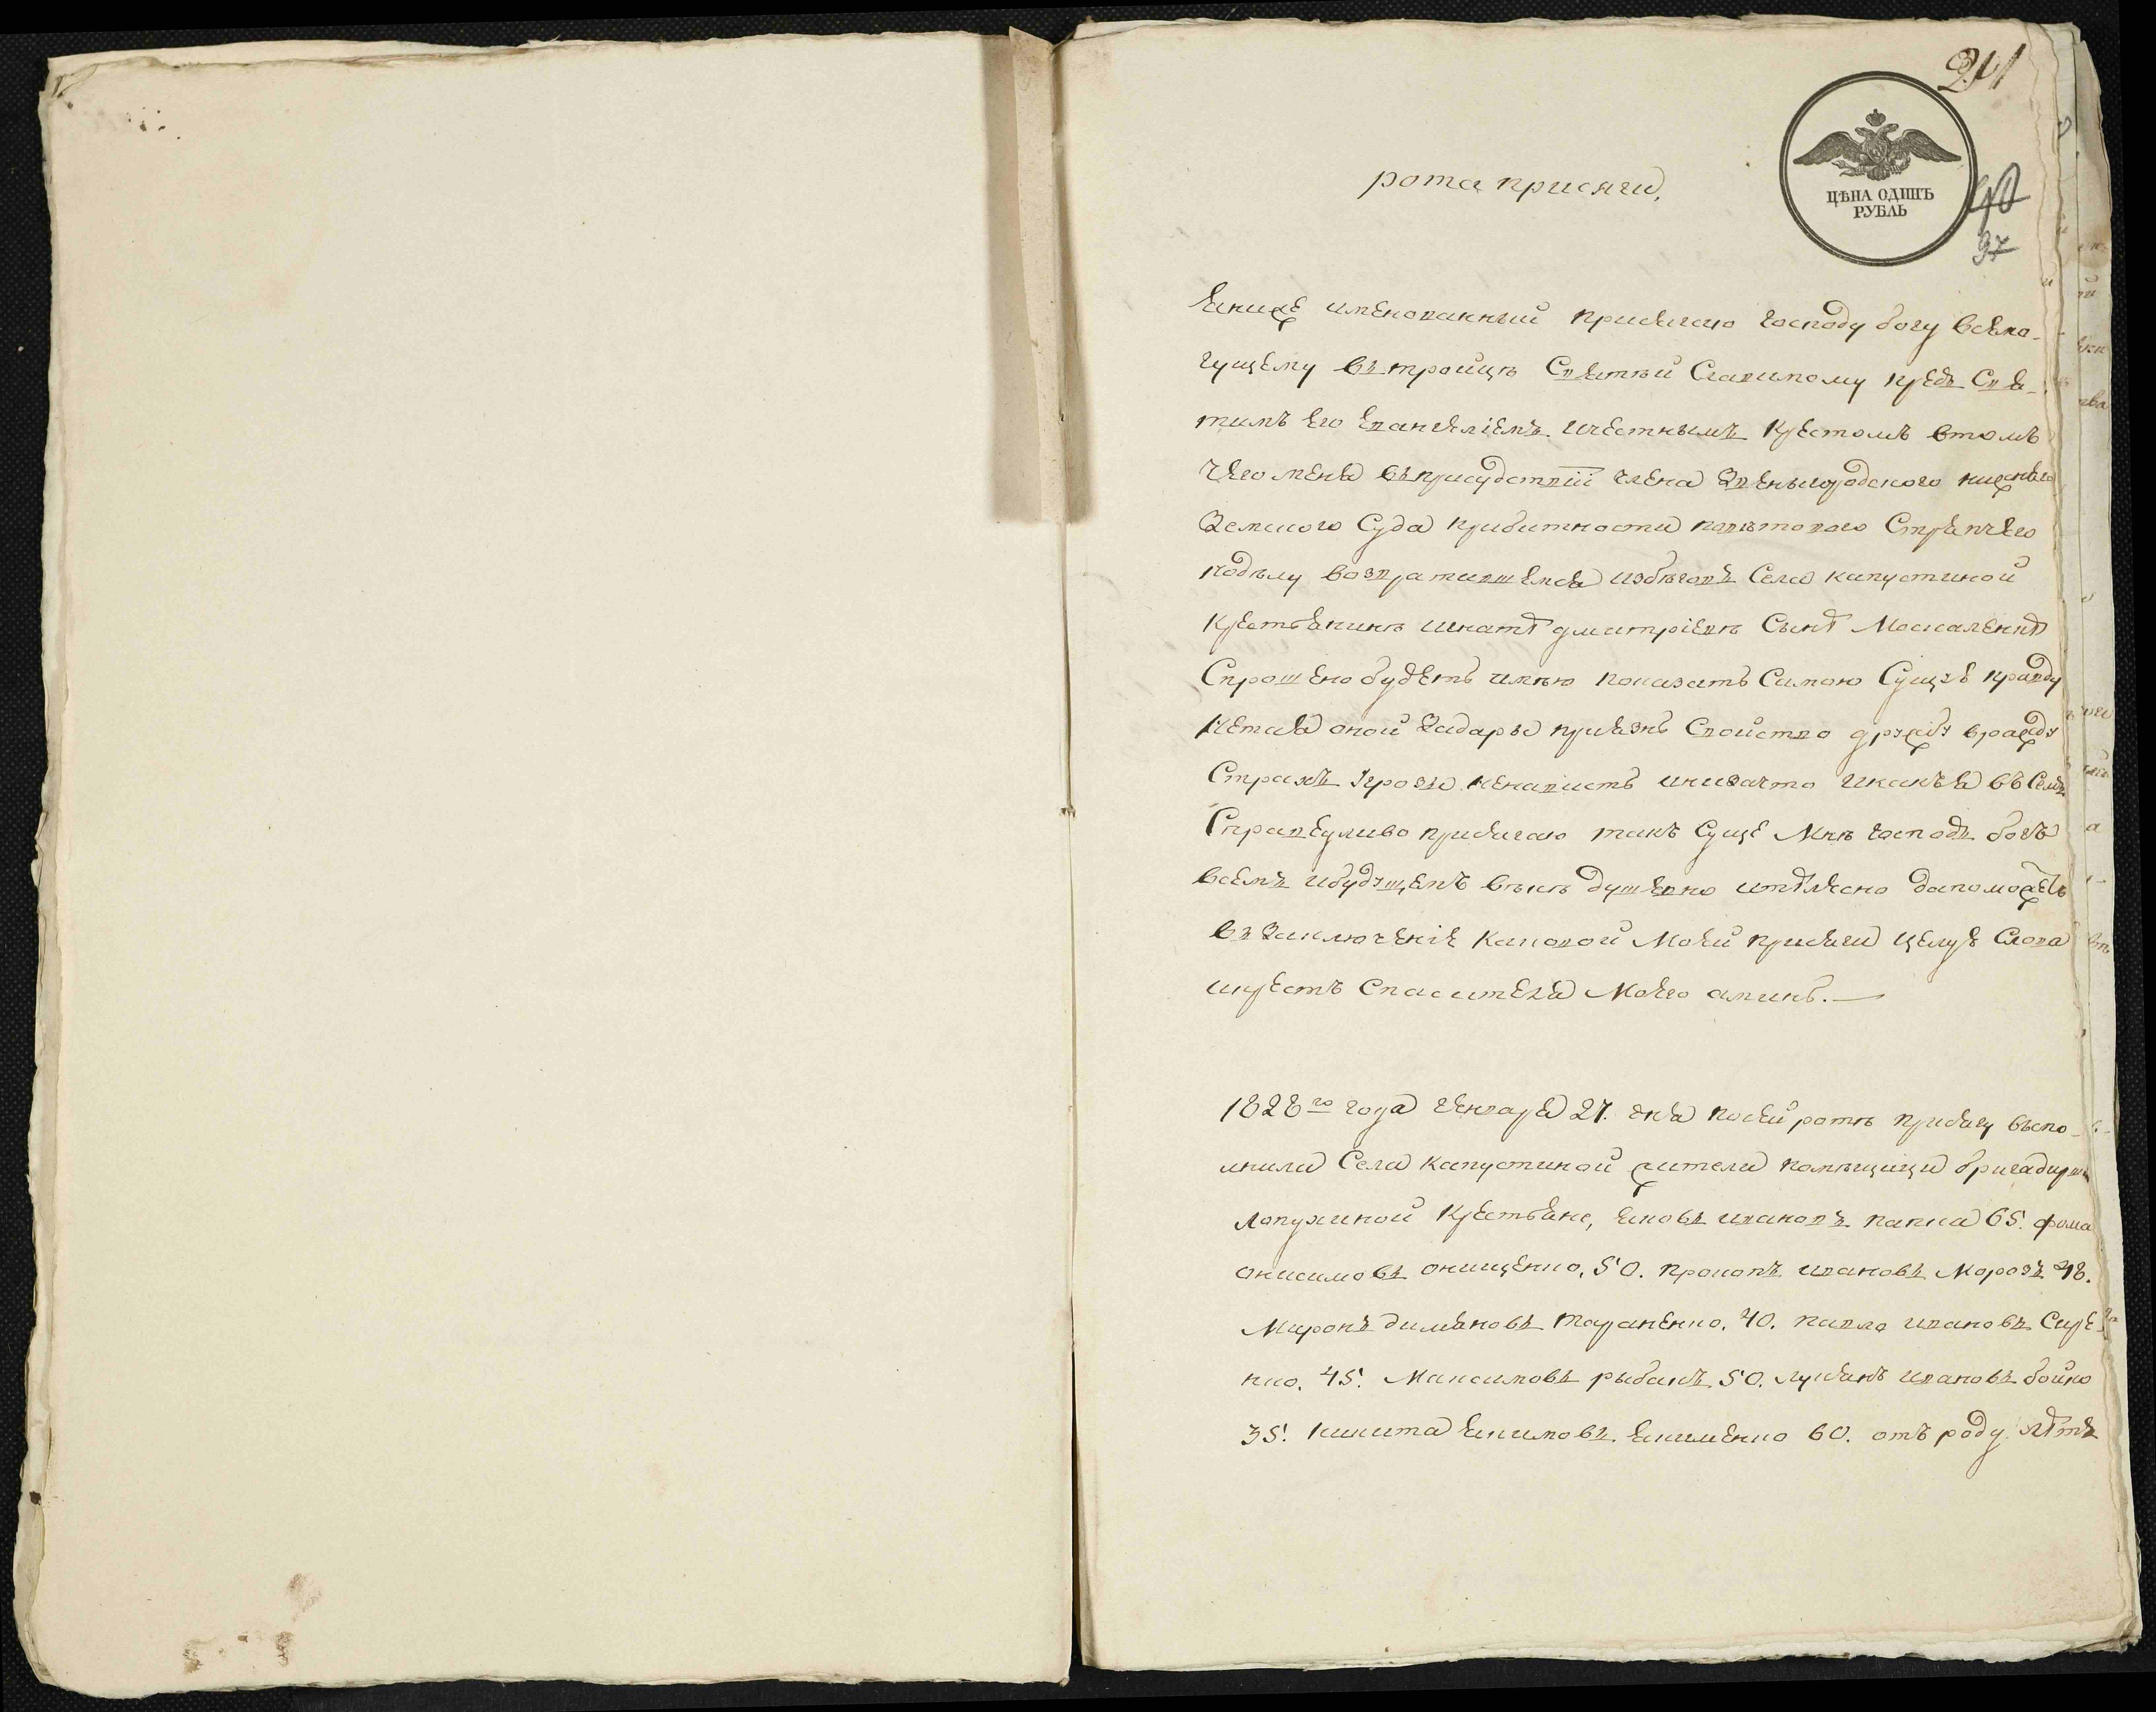 241
ЦѢНА ОДИНЪ
РУБЛЬ
97
рота присяги,
Яниже именованный присягаю господу богу всемо-
гущему въ троицѣ Святѣй Славимому предъ Свя-
тимъ Его Евангелiемъ ичестнымъ Крестомъ втомъ
чего меня въприсудствіи члена Звенигородского нижнего
Земского Суда прибитности повѣтового Стряпчего
поделу возвратившемся избѣговъ Села капустиной
крестьянинѣ Игнатѣ дмитрiевѣ Сынѣ Москаленкѣ
Спрошено будетъ имѣю показать Самою Сущую правду
нетая оной Задары приязнь Свойство дружбу вражду
Страхъ Угрозы ненависть инизачто иначе я въ Семъ
Справедливо присягаю такъ Суще Мнѣ господь богъ
всемъ ибудущемъ вѣкѣ душевно итѣлесно допоможетъ
въ Заключенiе каковой Моей присяги целую Слова
икрестъ Спасителя Моего аминь.—
1828го года Генваря 27. дня посей ротѣ присягу выпо-
лнили Села капустиной жители помѣщици бригадирши
лопухиной крестьяне, яковъ ивановъ папка 65. фома
онисимовъ онищенко, 50. прокопъ ивановъ Морозъ 48.
Миронъ демяновъ тараненко. 40. павло ивановъ Сире
нко. 45. Максимовъ рыбакъ 50. лукянъ ивановъ бойко
35. никита якимовъ якименко 60. отъ роду лѣтъ